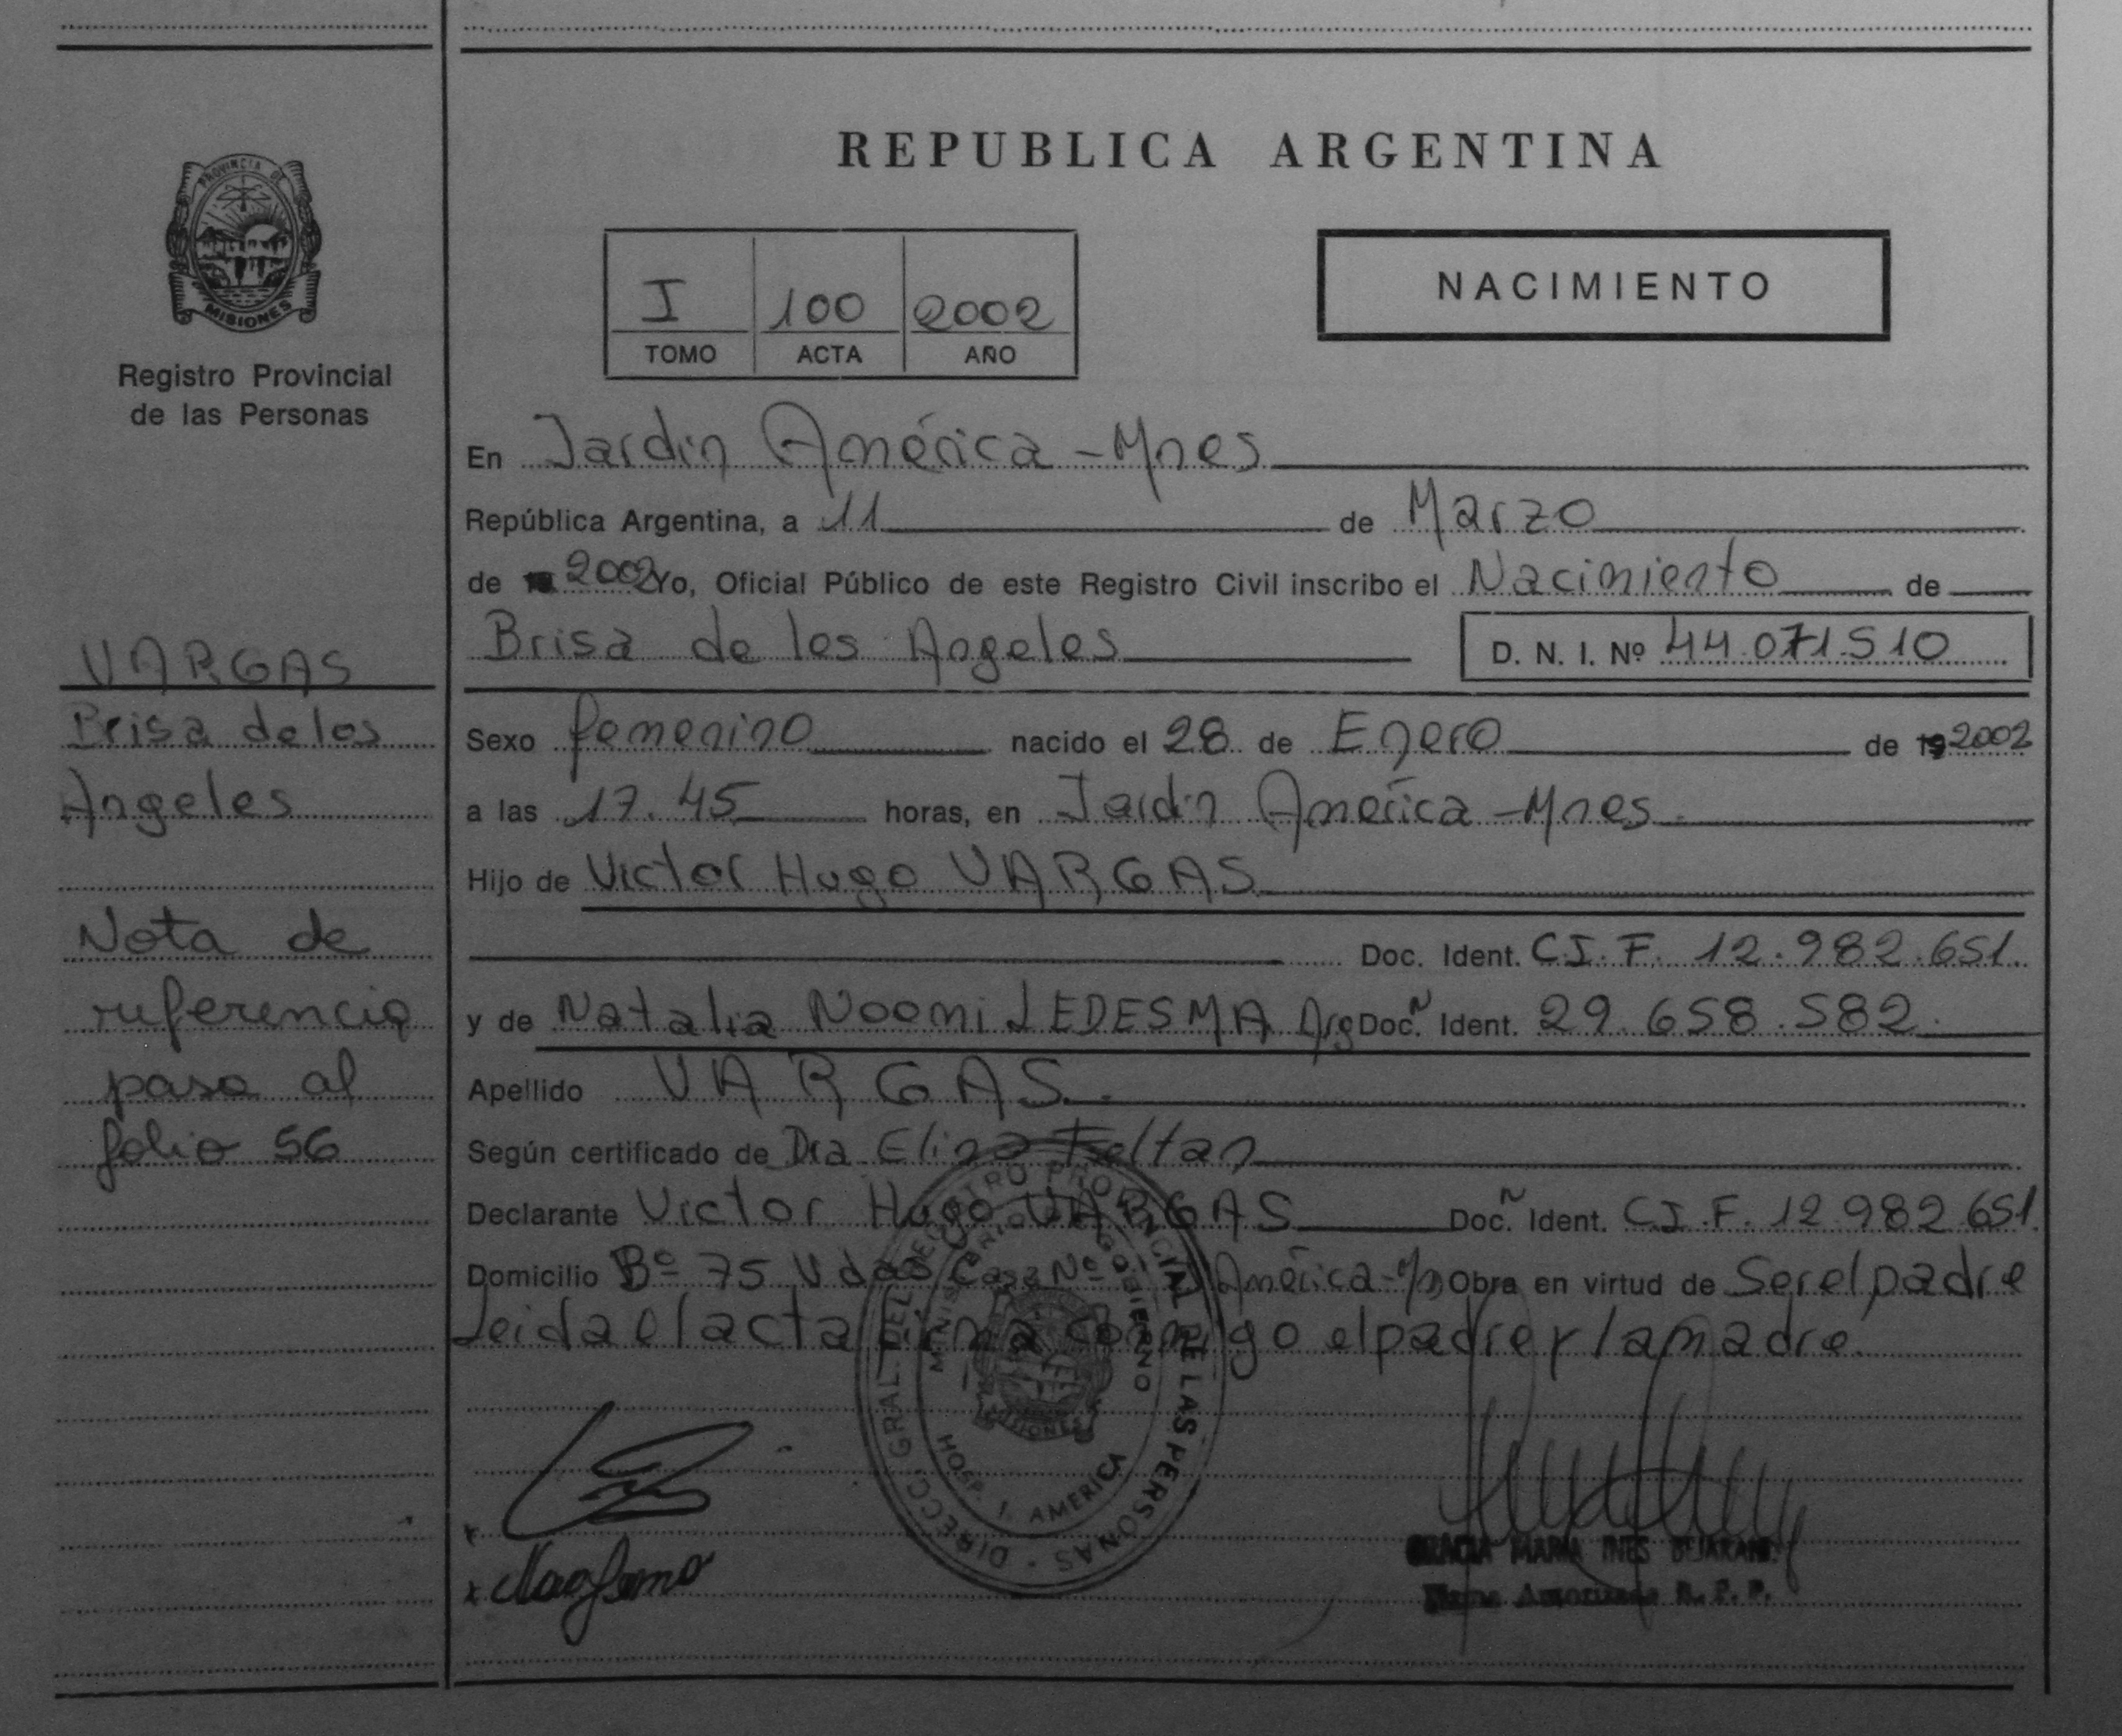 REPUBLICA ARGENTINA
PROVINCIA DE
MISIONES
Registro Provincial
de las Personas
I 100 2002
TOMO ACTA AÑO
NACIMIENTO
En Jardin América - Mnes
República Argentina, a 11 de Marzo
de 19 2002 Yo, Oficial Público de este Registro Civil inscribo el Nacimiento de
Brisa de los Angeles D. N. I. Nº 44.071.510
VARGAS
Brisa de los
Angeles
Sexo femenino nacido el 28 de Enero de 19 2002
a las 17.45 horas, en Jardin América - Mnes
Hijo de Victor Hugo VARGAS
Doc. Ident. C.I.F. 12.982.651.
y de Natalia Noemi LEDESMA Arg Doc. Ident. 29.658.582.
Apellido VARGAS.
Nota de
referencia
pasa al
folio 56
Según certificado de Dra Elina Feltan
Declarante Victor Hugo VARGAS Doc. Ident. C.I.F. 12.982.651.
Domicilio Bº 75 Vdas Casa Nº América - Obra en virtud de Ser el padre
Leida el acta firma conmigo el padre y la madre.
DIRECC. GRAL. DEL REGISTRO PROVINCIAL DE LAS PERSONAS
MINISTERIO DE GOBIERNO
MISIONES
HOSP. J. AMERICA
GRACIA MARIA INES BEJARANO
Firma Autorizada R. P. P.